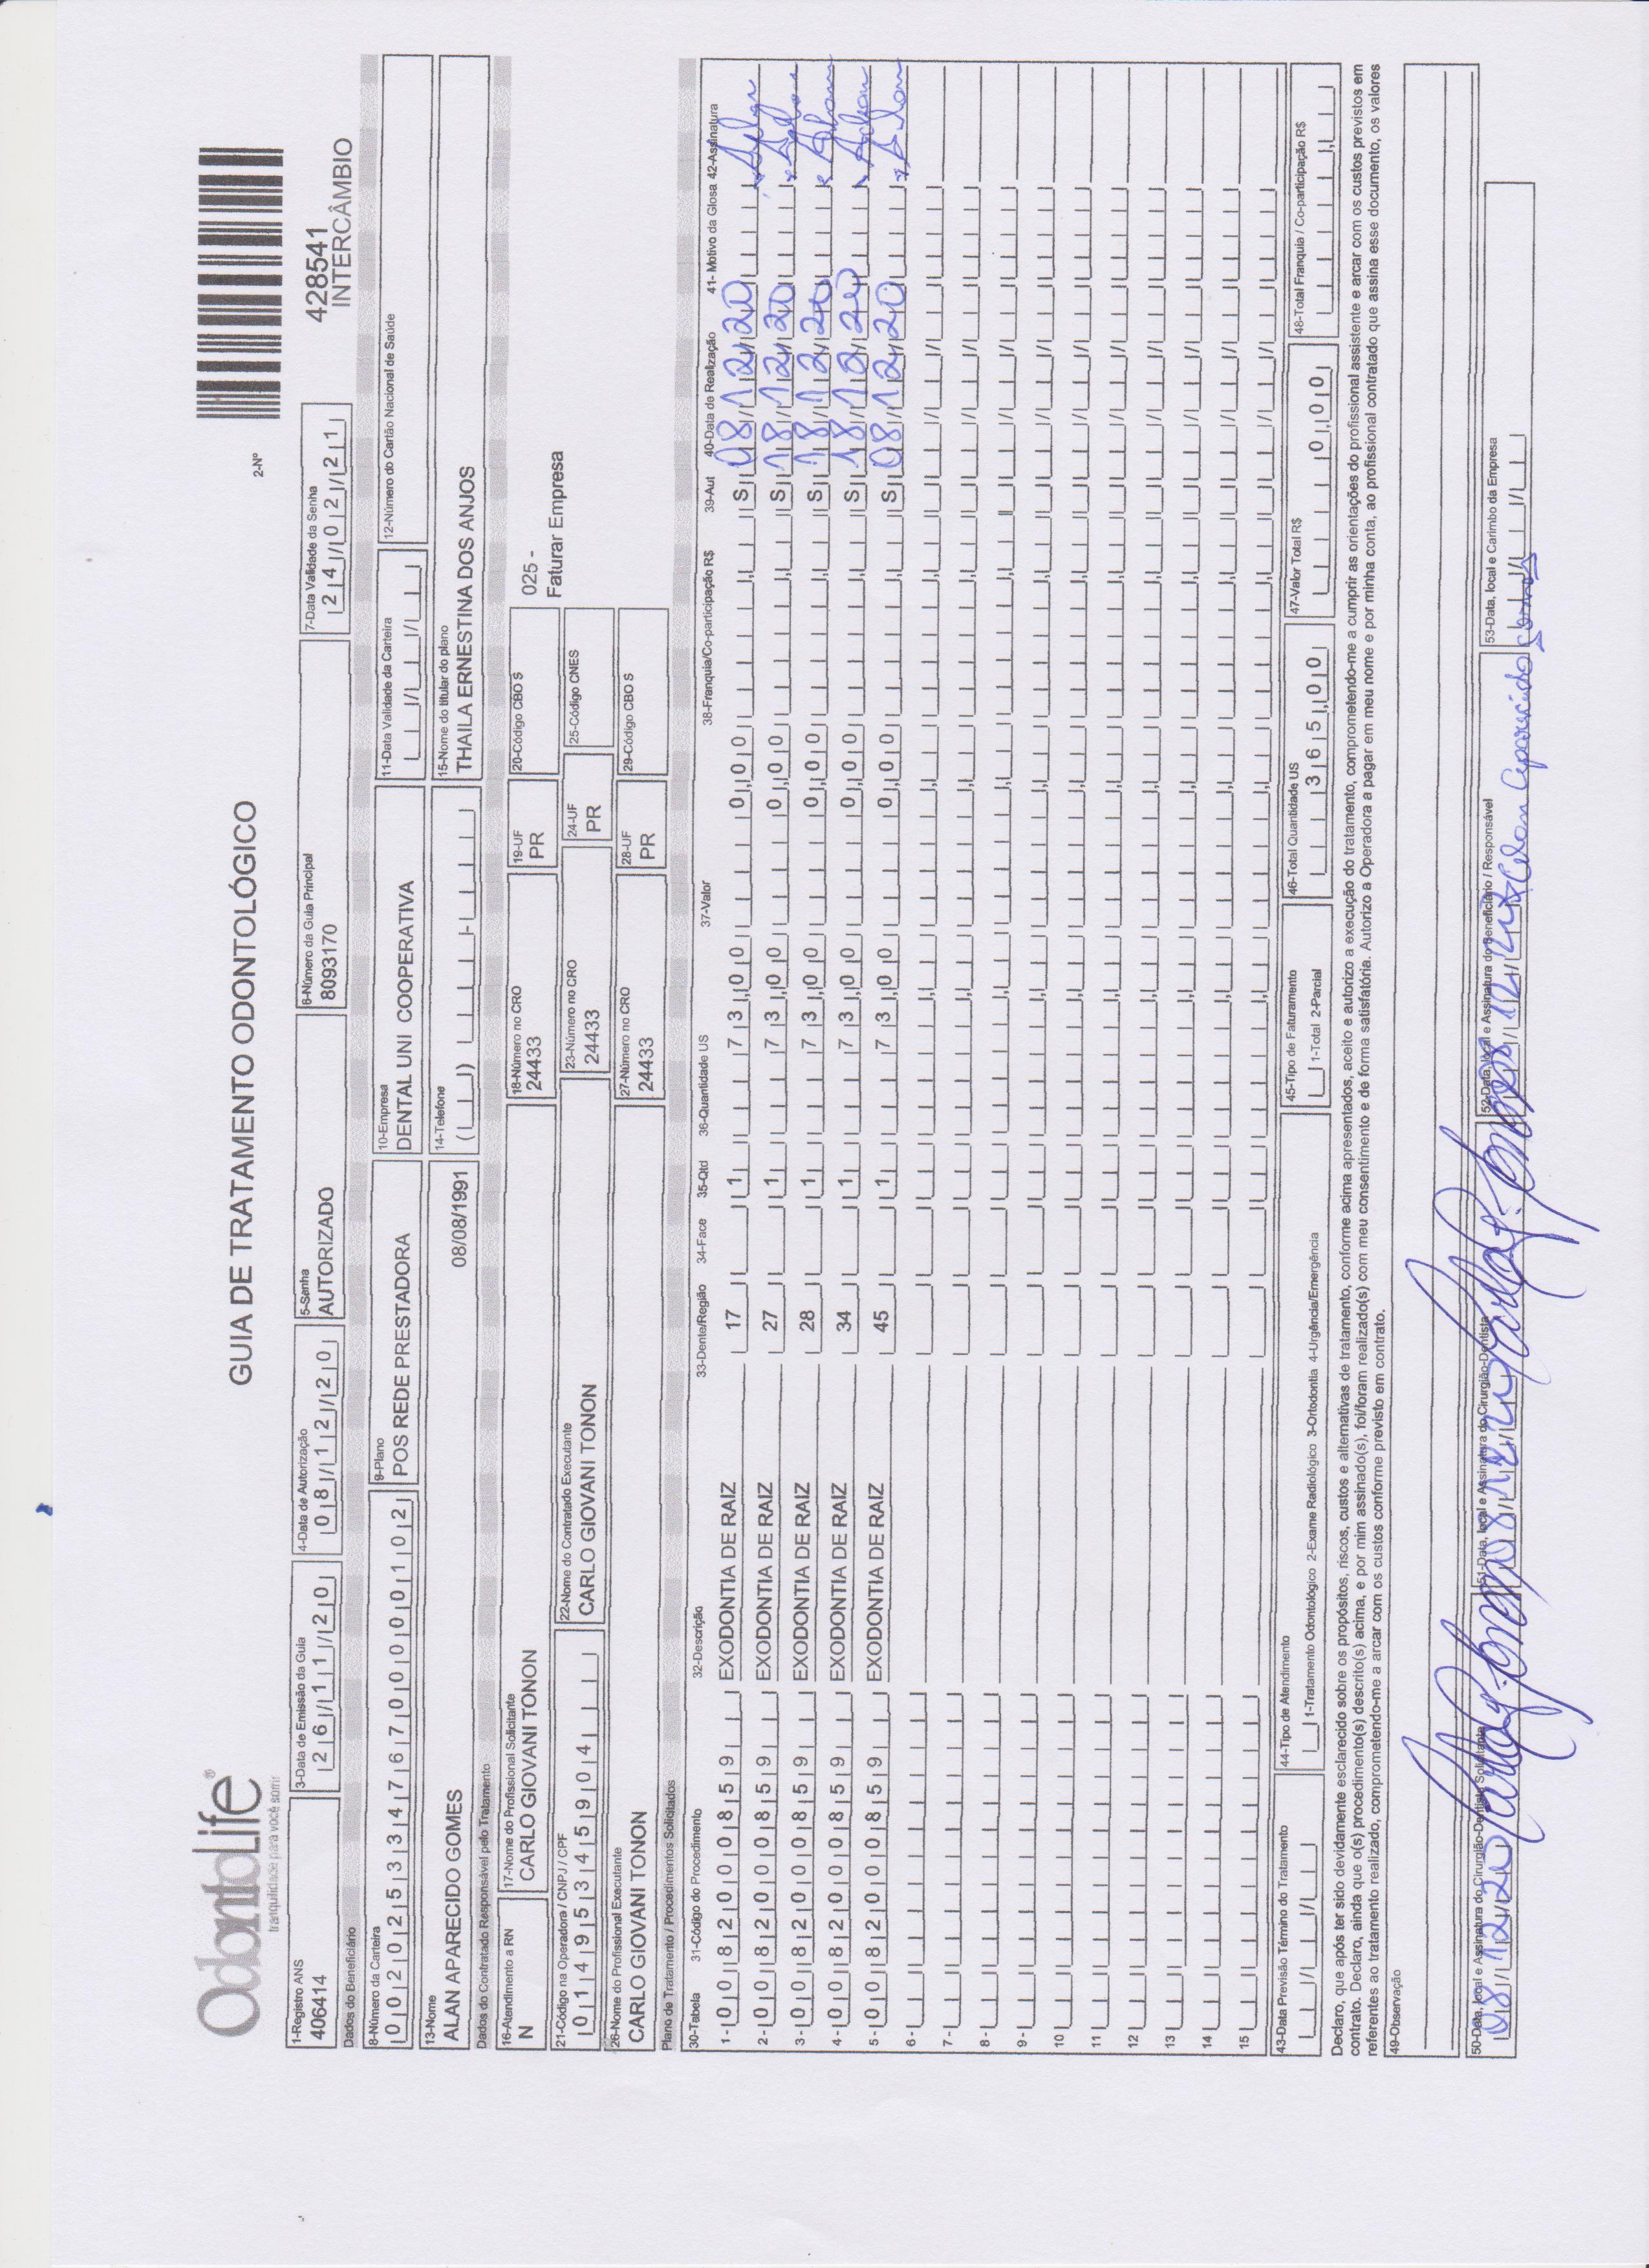 OdontoLife®
tranquilidade para você sorrir
GUIA DE TRATAMENTO ODONTOLÓGICO
2-Nº
428541
INTERCÂMBIO
1-Registro ANS
406414
3-Data de Emissão da Guia
26/11/20
4-Data de Autorização
08/12/20
5-Senha
AUTORIZADO
6-Número da Guia Principal
8093170
7-Data Validade da Senha
24/02/21
Dados do Beneficiário
8-Número da Carteira
00202533476700000102
9-Plano
POS REDE PRESTADORA
10-Empresa
DENTAL UNI COOPERATIVA
11-Data Validade da Carteira
12-Número do Cartão Nacional de Saúde
13-Nome
ALAN APARECIDO GOMES
08/08/1991
14-Telefone
15-Nome do titular do plano
THAILA ERNESTINA DOS ANJOS
Dados do Contratado Responsável pelo Tratamento
16-Atendimento a RN
N
17-Nome do Profissional Solicitante
CARLO GIOVANI TONON
18-Número no CRO
24433
19-UF
PR
20-Código CBO S
025 -
Faturar Empresa
21-Código na Operadora / CNPJ / CPF
01495345904
22-Nome do Contratado Executante
CARLO GIOVANI TONON
23-Número no CRO
24433
24-UF
PR
25-Código CNES
26-Nome do Profissional Executante
CARLO GIOVANI TONON
27-Número no CRO
24433
28-UF
PR
29-Código CBO S
Plano de Tratamento / Procedimentos Solicitados
30-Tabela 31-Código do Procedimento 32-Descrição 33-Dente/Região 34-Face 35-Qtd 36-Quantidade US 37-Valor 38-Franquia/Co-participação R$ 39-Aut 40-Data de Realização 41- Motivo da Glosa 42-Assinatura
1- 00 82000859 EXODONTIA DE RAIZ 17 1 73,00 0,00 S 08/12/20 Alan
2- 00 82000859 EXODONTIA DE RAIZ 27 1 73,00 0,00 S 18/12/20 Alan
3- 00 82000859 EXODONTIA DE RAIZ 28 1 73,00 0,00 S 18/12/20 Alan
4- 00 82000859 EXODONTIA DE RAIZ 34 1 73,00 0,00 S 18/10/20 Alan
5- 00 82000859 EXODONTIA DE RAIZ 45 1 73,00 0,00 S 08/12/20 Alan
6-
7-
8-
9-
10
11
12
13
14
15
43-Data Previsão Término do Tratamento
44-Tipo de Atendimento
1-Tratamento Odontológico 2-Exame Radiológico 3-Ortodontia 4-Urgência/Emergência
45-Tipo de Faturamento
1-Total 2-Parcial
46-Total Quantidade US
365,00
47-Valor Total R$
0,00
48-Total Franquia / Co-participação R$
Declaro, que após ter sido devidamente esclarecido sobre os propósitos, riscos, custos e alternativas de tratamento, conforme acima apresentados, aceito e autorizo a execução do tratamento, comprometendo-me a cumprir as orientações do profissional assistente e arcar com os custos previstos em
contrato. Declaro, ainda que o(s) procedimento(s) descrito(s) acima, e por mim assinado(s), foi/foram realizado(s) com meu consentimento e de forma satisfatória. Autorizo a Operadora a pagar em meu nome e por minha conta, ao profissional contratado que assina esse documento, os valores
referentes ao tratamento realizado, comprometendo-me a arcar com os custos conforme previsto em contrato.
49-Observação
50-Data, local e Assinatura do Cirurgião-Dentista Solicitante
08/12/20
51-Data, local e Assinatura do Cirurgião-Dentista
52-Data, local e Assinatura do Beneficiário / Responsável
Alan Aparecido Gomes
53-Data, local e Carimbo da Empresa